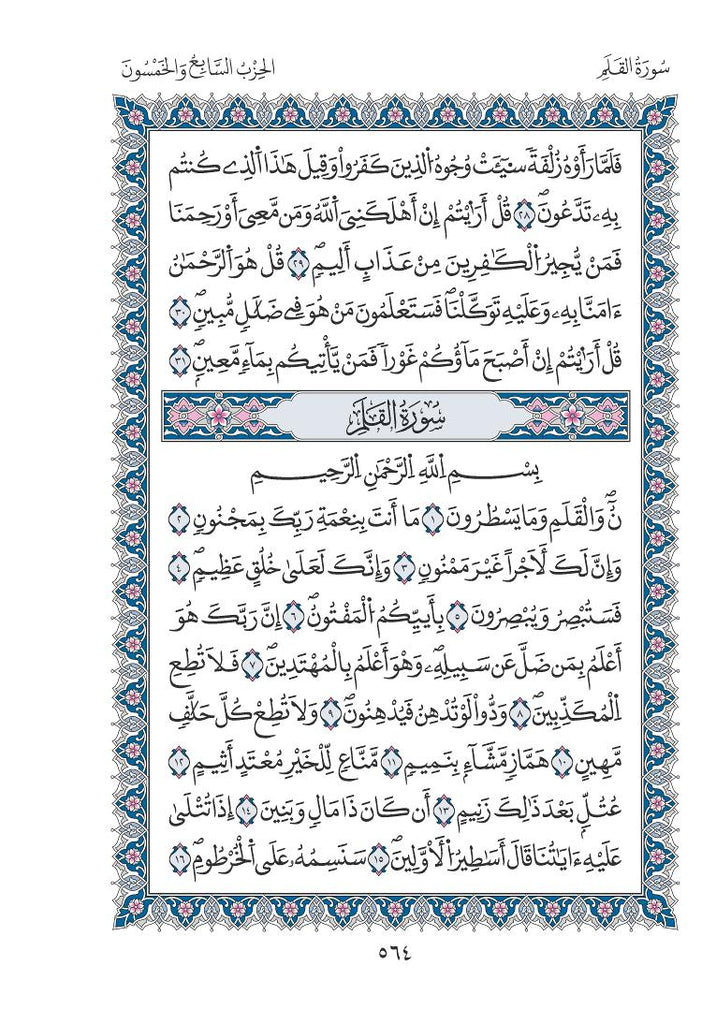 سُورَةُ القَلَمِ
الحِزْبُ السَّابِعُ وَالخَمْسُونَ
فَلَمَّا رَأَوْهُ زُلْفَةٗ سِيٓـَٔتْ وُجُوهُ اُلذِينَ كَفَرُواْ وَقِيلَ هَٰذَا اَلذِے كُنتُم
بِهِۦ تَدَّعُونَۖ ٢٨ قُلْ أَرَٰيْتُمْ إِنْ أَهْلَكَنِيَ اَللَّهُ وَمَن مَّعِيَ أَوْ رَحِمَنَا
فَمَنْ يُّجِيرُ اُلْكَٰفِرِينَ مِنْ عَذَابٍ أَلِيمٖۖ ٢٩ قُلْ هُوَ اَلرَّحْمَٰنُ
ءَامَنَّا بِهِۦ وَعَلَيْهِ تَوَكَّلْنَاۖ فَسَتَعْلَمُونَ مَنْ هُوَ فِے ضَلَٰلٖ مُّبِينٖۖ ٣٠
قُلْ أَرَٰيْتُمْ إِنْ أَصْبَحَ مَآؤُكُمْ غَوْراٗ فَمَنْ يَّأْتِيكُم بِمَآءٖ مَّعِينٖۖ ٣١
سُورَةُ القَلَمِ
بِسْمِ اِللَّهِ اِلرَّحْمَٰنِ اِلرَّحِيمِ
نَٓۖ وَالْقَلَمِ وَمَا يَسْطُرُونَ ١ مَا أَنتَ بِنِعْمَةِ رَبِّكَ بِمَجْنُونٖ ٢
وَإِنَّ لَكَ لَأَجْراً غَيْرَ مَمْنُونٖ ٣ وَإِنَّكَ لَعَلَىٰ خُلُقٍ عَظِيمٖۖ ٤
فَسَتُبْصِرُ وَيُبْصِرُونَ ٥ بِأَييِّكُمُ اُلْمَفْتُونُۖ ٦ إِنَّ رَبَّكَ هُوَ
أَعْلَمُ بِمَن ضَلَّ عَن سَبِيلِهِۦ وَهُوَ أَعْلَمُ بِالْمُهْتَدِينَۖ ٧ فَلَا تُطِعِ
اِلْمُكَذِّبِينَۖ ٨ وَدُّواْ لَوْ تُدْهِنُ فَيُدْهِنُونَۖ ٩ وَلَا تُطِعْ كُلَّ حَلَّافٖ
مَّهِينٍ ١٠ هَمَّازٖ مَّشَّآءِۢ بِنَمِيمٖ ١١ مَّنَّاعٖ لِّلْخَيْرِ مُعْتَدٍ أَثِيمٍ ١٢
عُتُلِّۢ بَعْدَ ذَٰلِكَ زَنِيمٍ ١٣ أَن كَانَ ذَا مَالٖ وَبَنِينَ ١٤ إِذَا تُتْلَىٰ
عَلَيْهِ ءَايَٰتُنَا قَالَ أَسَٰطِيرُ اُلْأَوَّلِينَۖ ١٥ سَنَسِمُهُۥ عَلَى اَلْخُرْطُومِۖ ١٦
٥٦٤